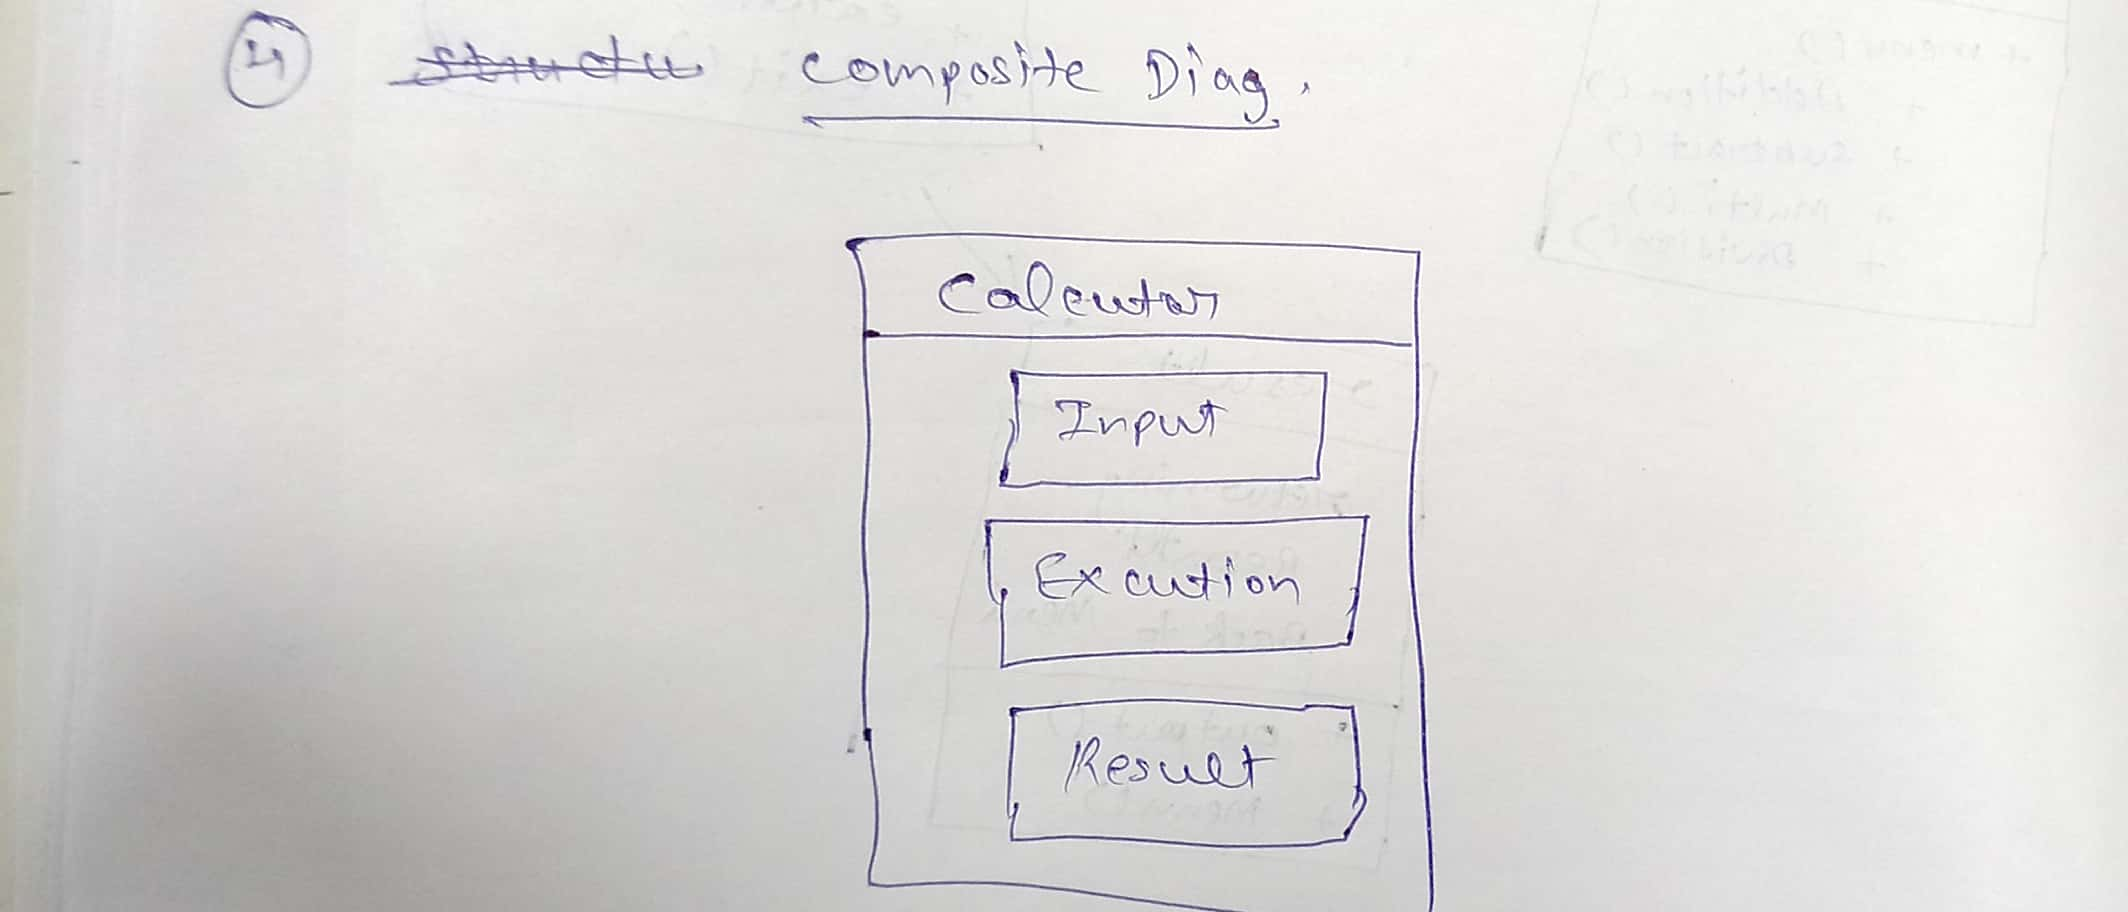 4 Composite Diag.
Calcutor
Input
Excution
Result